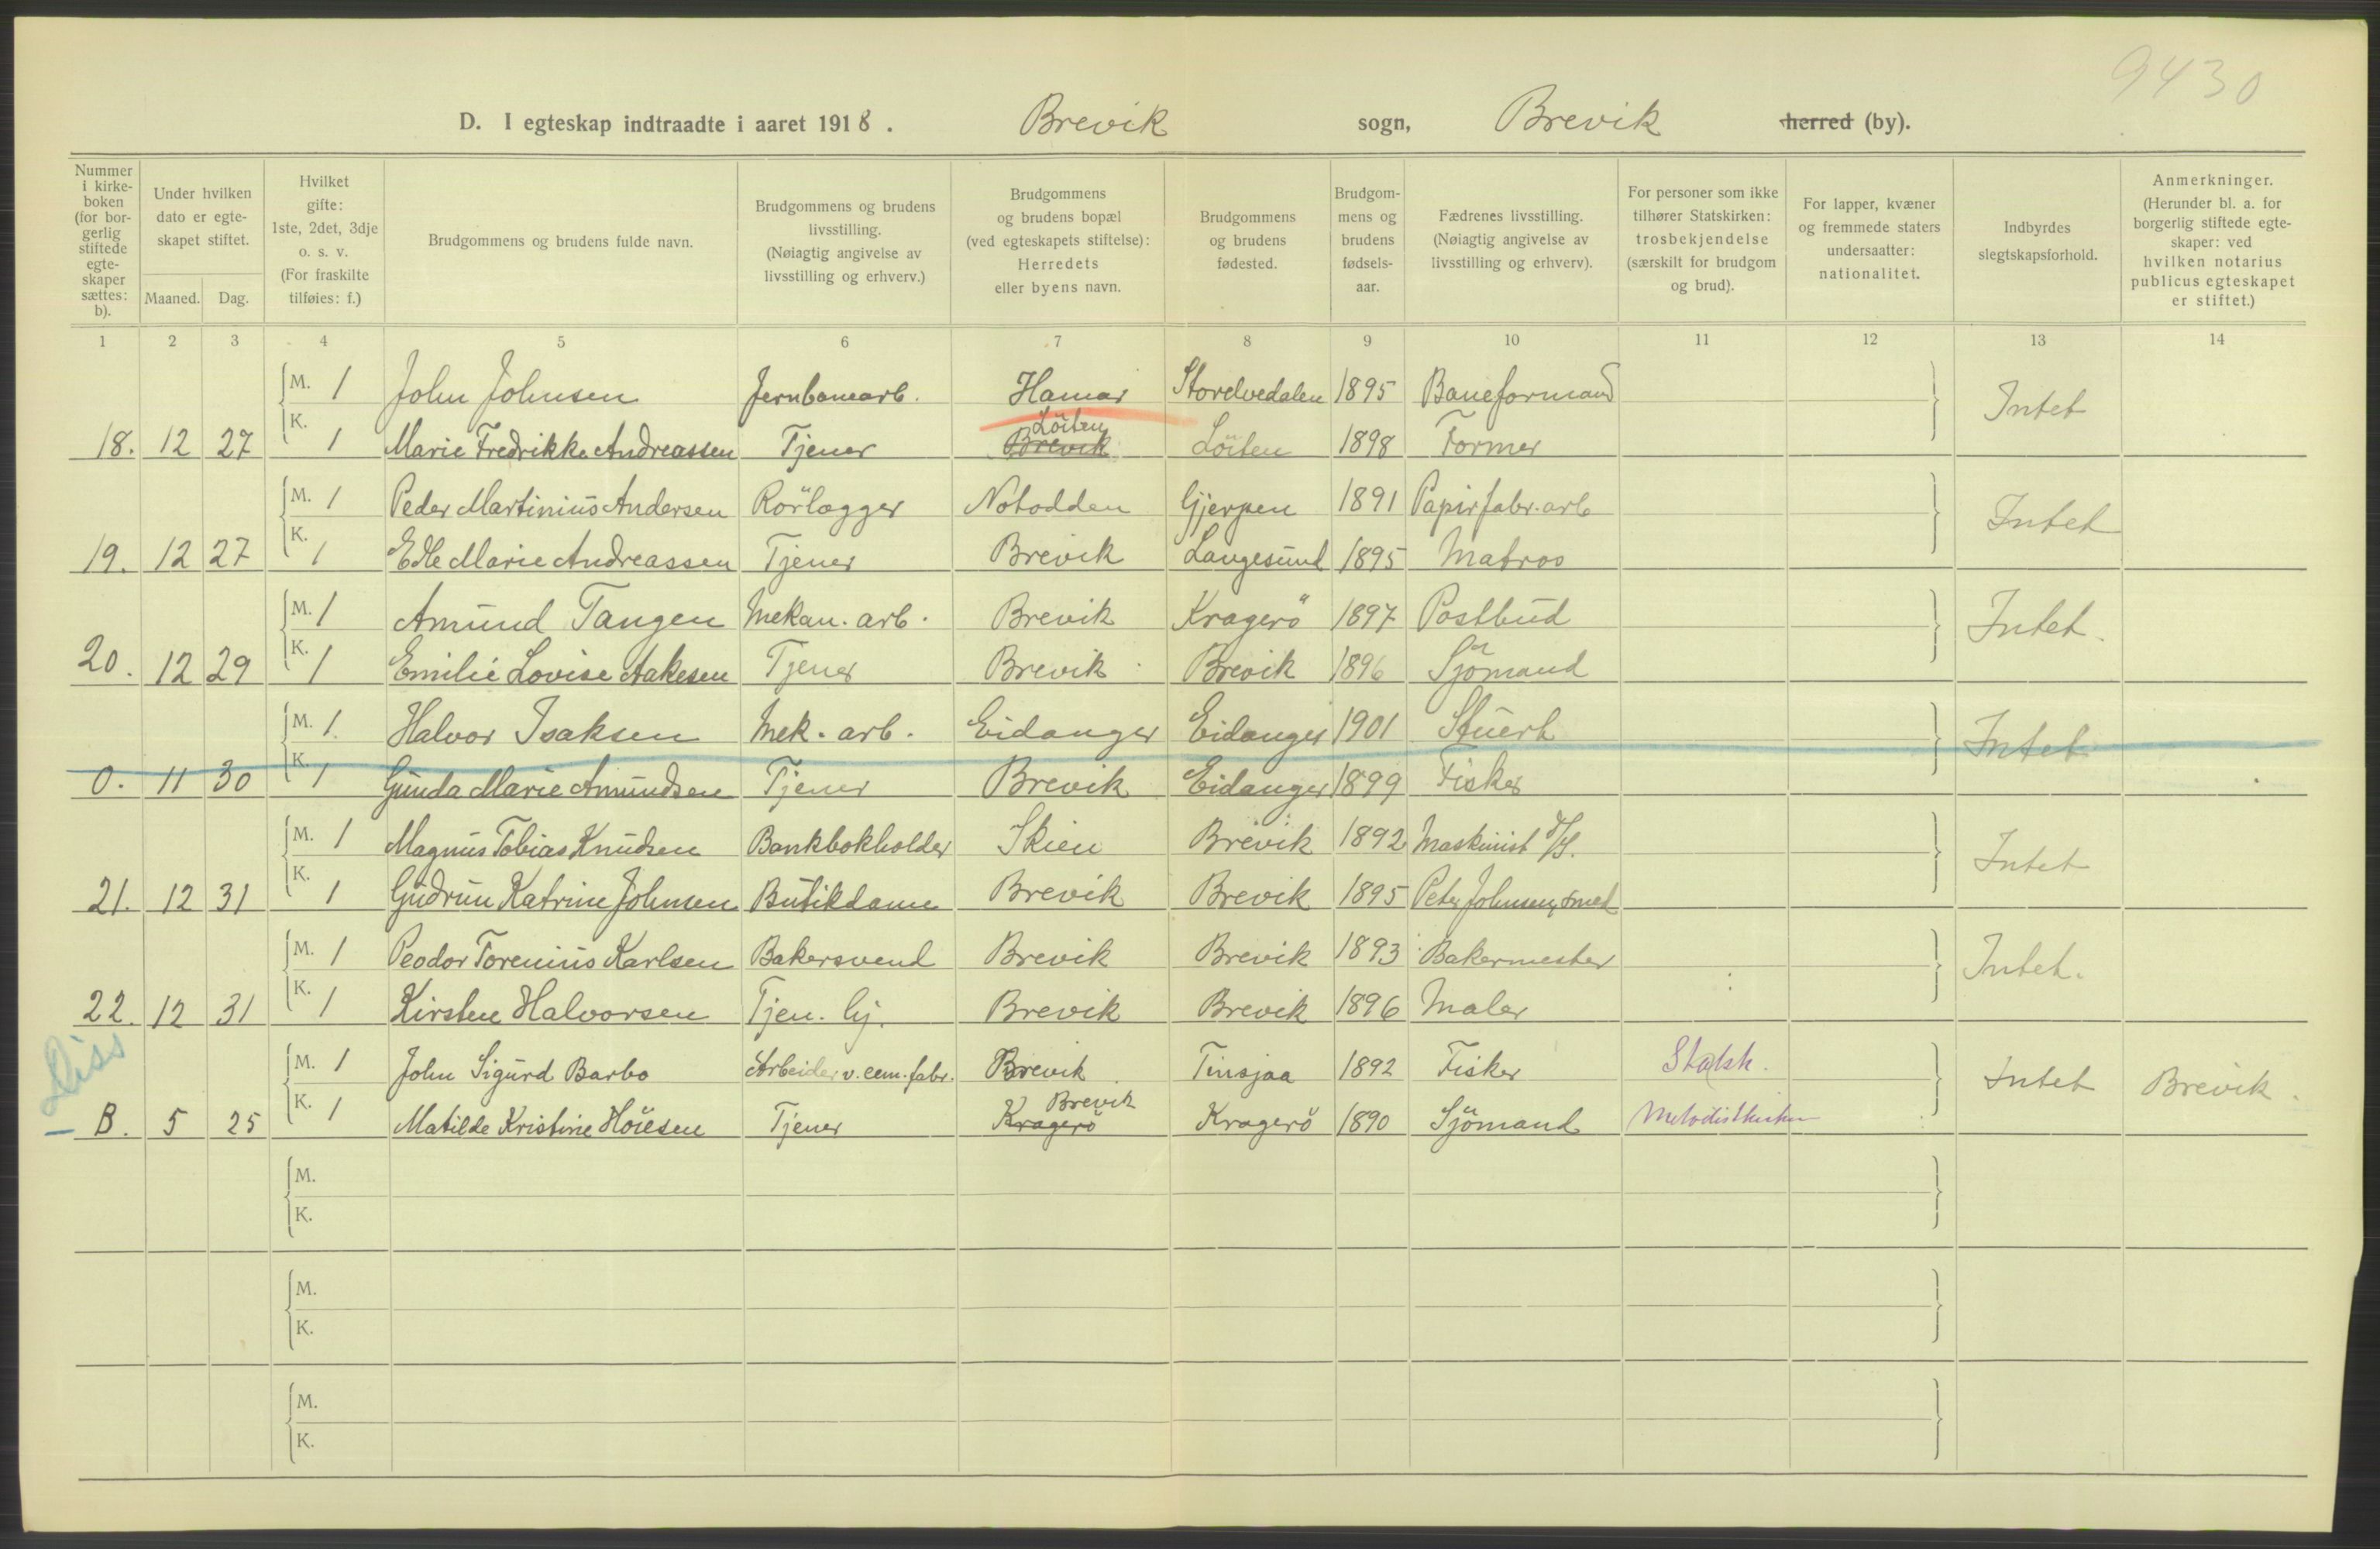 9430
D. I egteskap indtraadte i aaret 1918. Brevik sogn, Brevik herred (by).
Nummer i kirke-boken (for bor-gerlig stiftede egte-skaper sættes: b).
Under hvilken dato er egte-skapet stiftet.
Maaned. Dag.
Hvilket gifte: 1ste, 2det, 3dje o. s. v. (For fraskilte tilføies: f.)
Brudgommens og brudens fulde navn.
Brudgommens og brudens livsstilling. (Nøiagtig angivelse av livsstilling og erhverv.)
Brudgommens og brudens bopæl (ved egteskapets stiftelse): Herredets eller byens navn.
Brudgommens og brudens fødested.
Brudgom-mens og brudens fødsels-aar.
Fædrenes livsstilling. (Nøiagtig angivelse av livsstilling og erhverv).
For personer som ikke tilhører Statskirken: trosbekjendelse (særskilt for brudgom og brud).
For lapper, kvæner og fremmede staters undersaatter: nationalitet.
Indbyrdes slegtskapsforhold.
Anmerkninger. (Herunder bl. a. for borgerlig stiftede egte-skaper: ved hvilken notarius publicus egteskapet er stiftet.)
1 2 3 4 5 6 7 8 9 10 11 12 13 14
M. 1 John Johnsen Jernbanearb. Hamar Storelvedalen 1895 Baneformand Intet
Löiten
18. 12 27 K. 1 Marie Fredrikke Andreassen Tjener Brevik Löiten 1898 Former
M. 1 Peder Martinius Andersen Rörlægger Notodden Gjerpen 1891 Papirfabr. arb Intet
19. 12 27 K. 1 Edle Marie Andreassen Tjener Brevik Langesund 1895 Matros
M. 1 Amund Tangen Mekan. arb. Brevik Kragerö 1897 Postbud Intet.
20. 12 29 K. 1 Emilie Lovise Aakesen Tjener Brevik Brevik 1896 Sjömand
M. 1. Halvor Isaksen Mek. arb. Eidanger Eidanger 1901 Stuert Intet
0. 11 30 K. 1 Gunda Marie Amundsen Tjener Brevik Eidanger 1899 Fisker
M. 1 Magnus Tobias Knudsen Bankbokholder Skien Brevik 1892 Maskinist D/S. Intet
21. 12 31 K. 1 Gudrun Katrine Johnsen Butikdame Brevik Brevik 1895 Peter Johnsen, smed
M. 1 Peodor Torenius Karlsen Bakersvend Brevik Brevik 1893 Bakermester Intet.
22. 12 31 K. 1 Kirsten Halvorsen Tjen. hj. Brevik Brevik 1896 Maler
Diss
M. 1 John Sigurd Barbo Arbeider v. cem. fabr. Brevik Tinsjaa 1892 Fisker Statsk. Intet Brevik.
Brevik
B. 5 25 K. 1 Matilde Kristine Höiesen Tjener Kragerö Kragerö 1890 Sjömand Metodistkirken
M.
K.
M.
K.
M.
K.